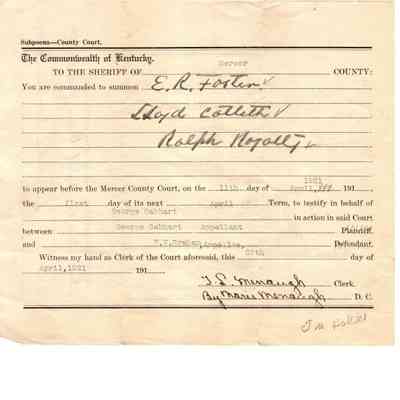 Subpoena—County Court.
The Commonwealth of Kentucky.
TO THE SHERIFF OF Mercer COUNTY:
You are commanded to summon E. R. Foster
Lloyd
Ralph
1921
to appear before the Mercer County Court, on the 11th day of April, 191
the first day of its next April Term, to testify in behalf of
George Gabhart in action in said Court
between George Gabhart Appellant Plaintiff,
and Appellee, Defendant.
Witness my hand as Clerk of the Court aforesaid, this day of
April, 1921 191
T. S. Menaugh Clerk
By Marie Menaugh D. C.